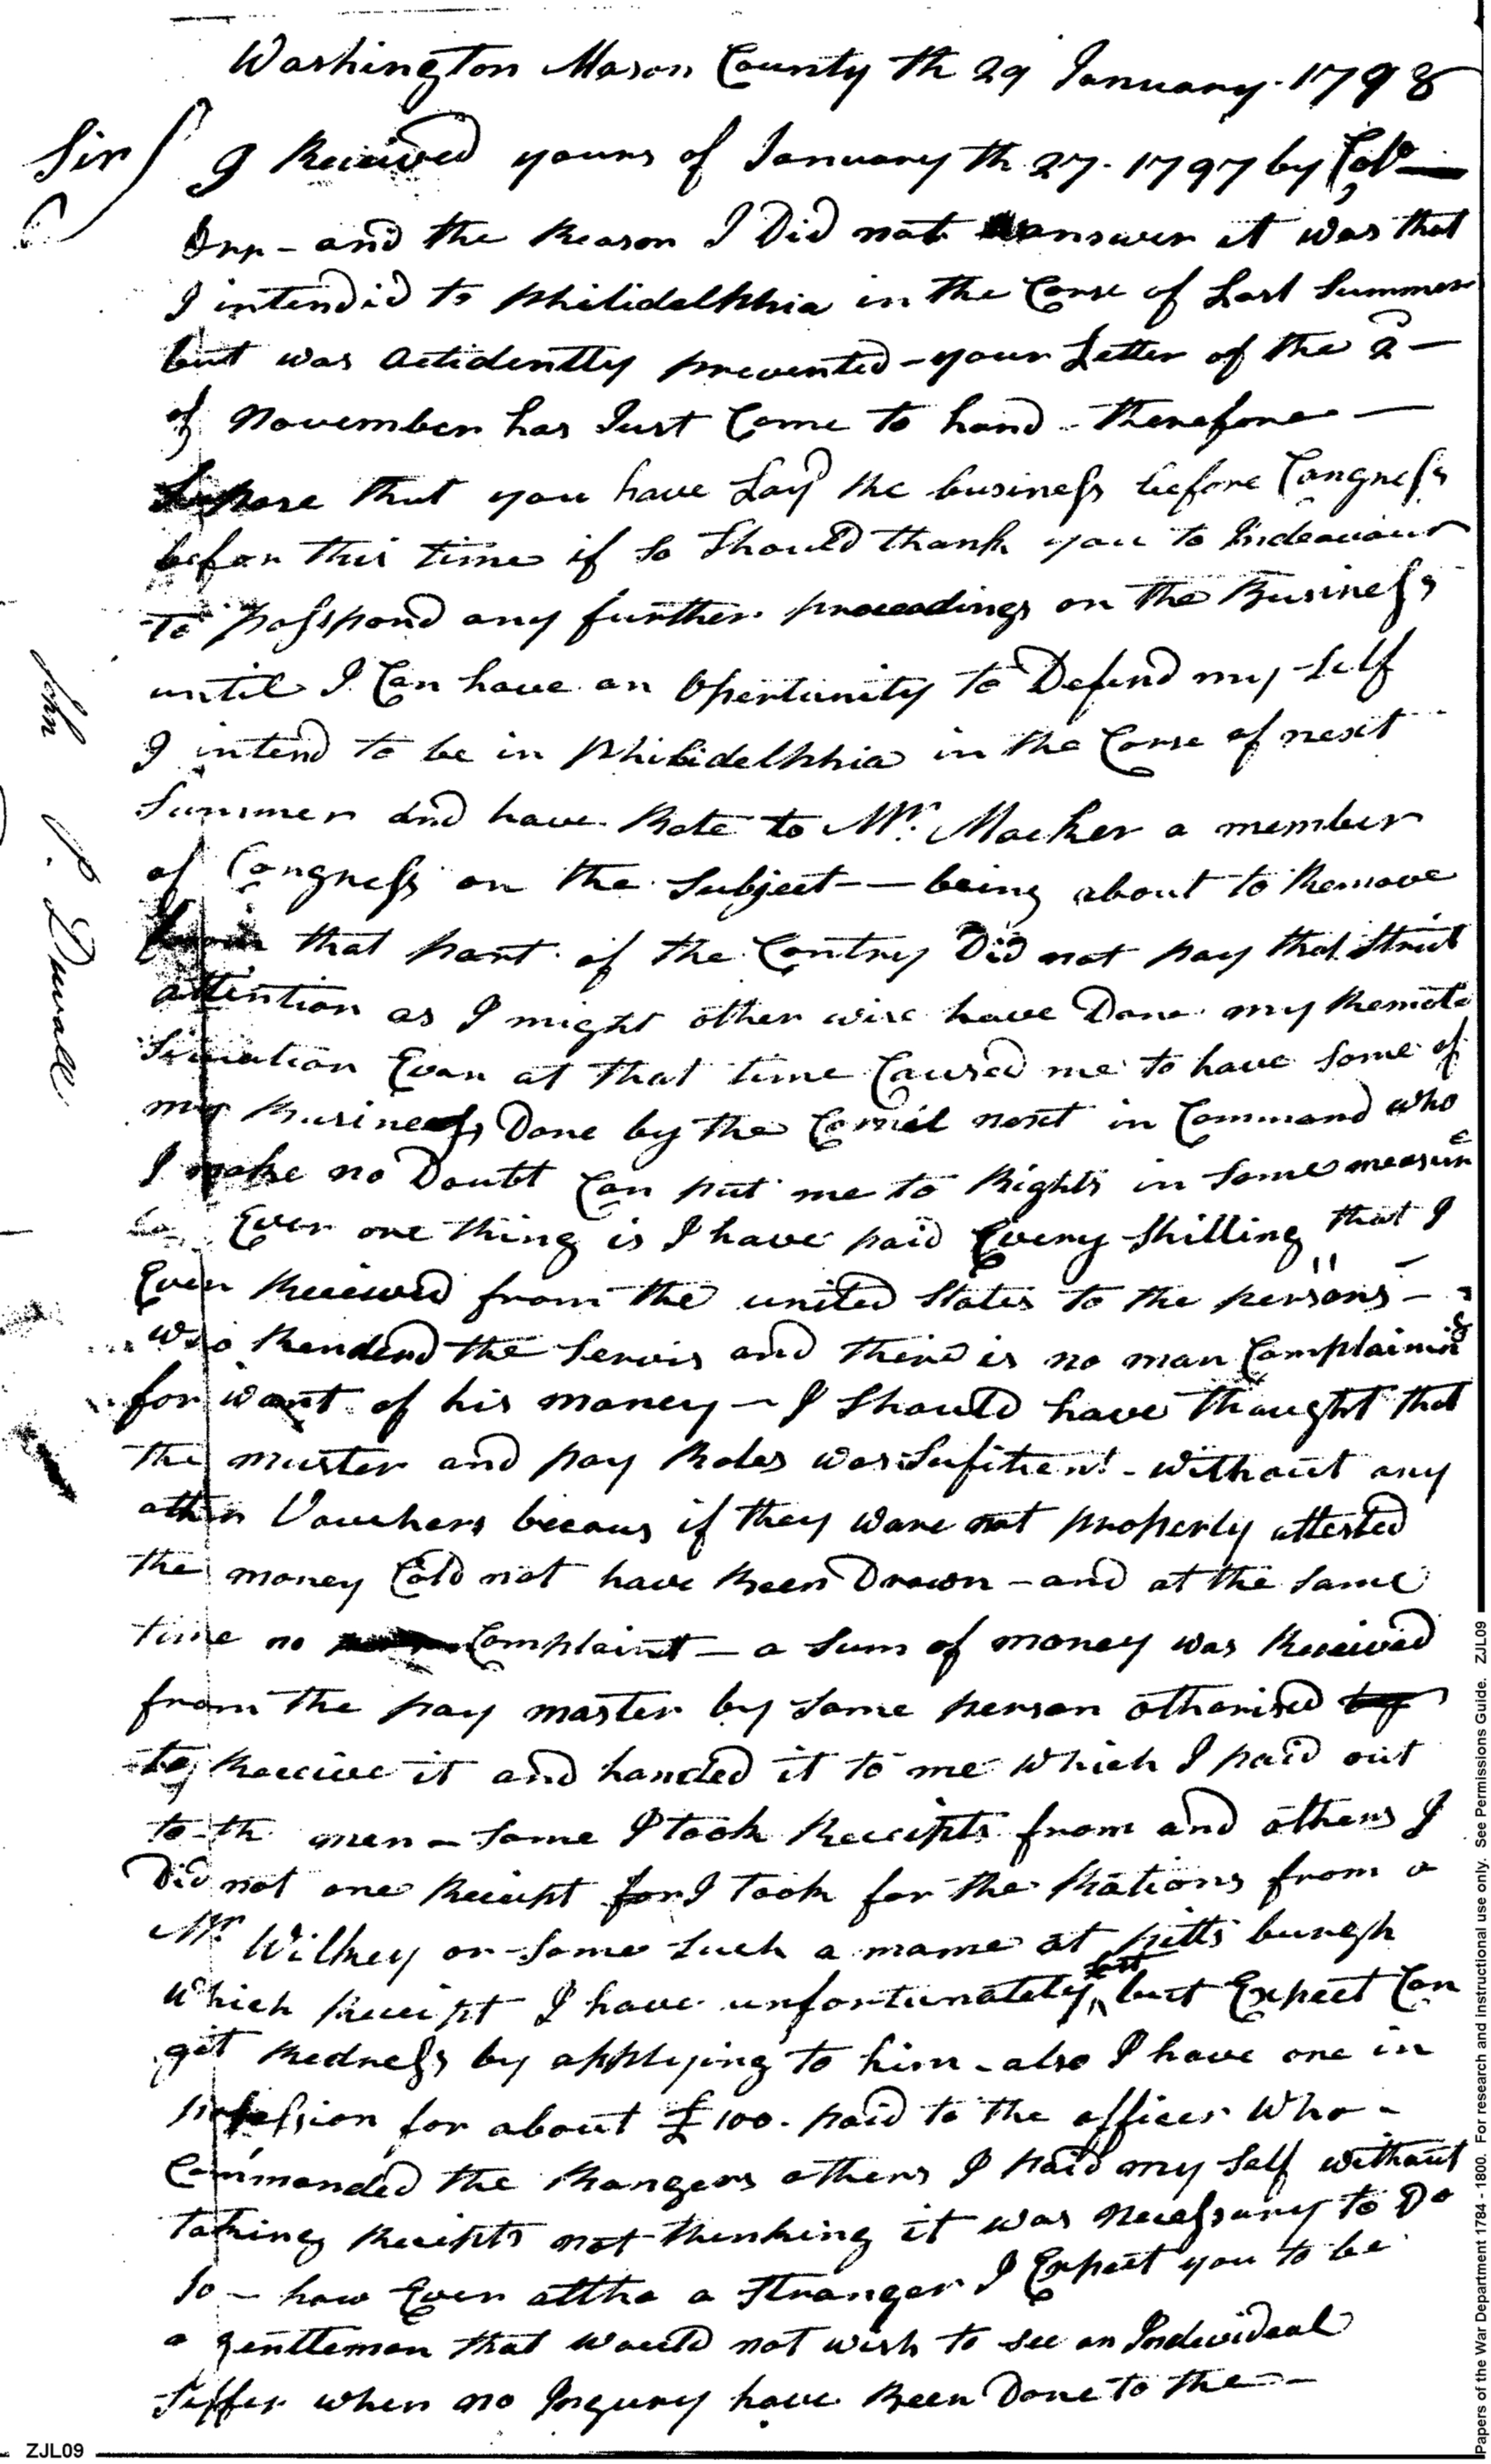 Washington Mason County th 29 January. 1798
Sir I Received yours of January th 27. 1797 by Colo
Orr - and the Reason I Did not answer it was that
I intendid to Philidelphia in the Corse of Last Summer
but was actidently prevented - your Letter of the 2
of November has Just Come to hand - therefore
Supose that you have Layd the business before Congress
befor this time if so Should thank you to Indeavour
to posspond any further proceedings on the Business
until I Can have an Opertunity to Defend my self
I intend to be in Philidelphia in the Corse of next
Summer and have Rote to Mr. Macker a member
of Congress on the Subject - being about to Remove
from that part of the Contry Did not pay that strict
attention as I might other wise have Done my Remote
Situation Evan at that time Caused me to have some of
my Business Done by the next in Command who
I make no Doubt Can put me to Rights in some measure
Ever one thing is I have paid Every Shilling that I
Ever Received from the united States to the persons -
who Renderd the Servis and there is no man Complaining
for want of his money - I Should have thought that
the muster and pay Roles was Sufitient - without any
other Vouchers becaus if they ware not properly attested
the money Cold not have Been Drawn - and at the same
time no Complaint - a Sum of money was Received
from the pay master by some person othorised by
to Receive it and handed it to me which I paid out
to th men - some I took Receipts from and others I
Did not one Receipt for I took for the Rations from a
Mr Wilkey or some such a mame at pitts burgh
which Receipt I have unfortunately lost but Expect Can
git Redress by applying to him - also I have one in
possession for about £100. paid to the officer who -
Commanded the Rangers others I paid my self without
taking Receipts not thenking it was necessary to Do
so - how Ever altho a Stranger I Expect you to be
a gentleman that would not wish to see an Individual
Suffer when no Ingury have Been Done to the -
John P. Duvall
ZJL09
Papers of the War Department 1784 - 1800. For research and instructional use only. See Permissions Guide. ZJL09